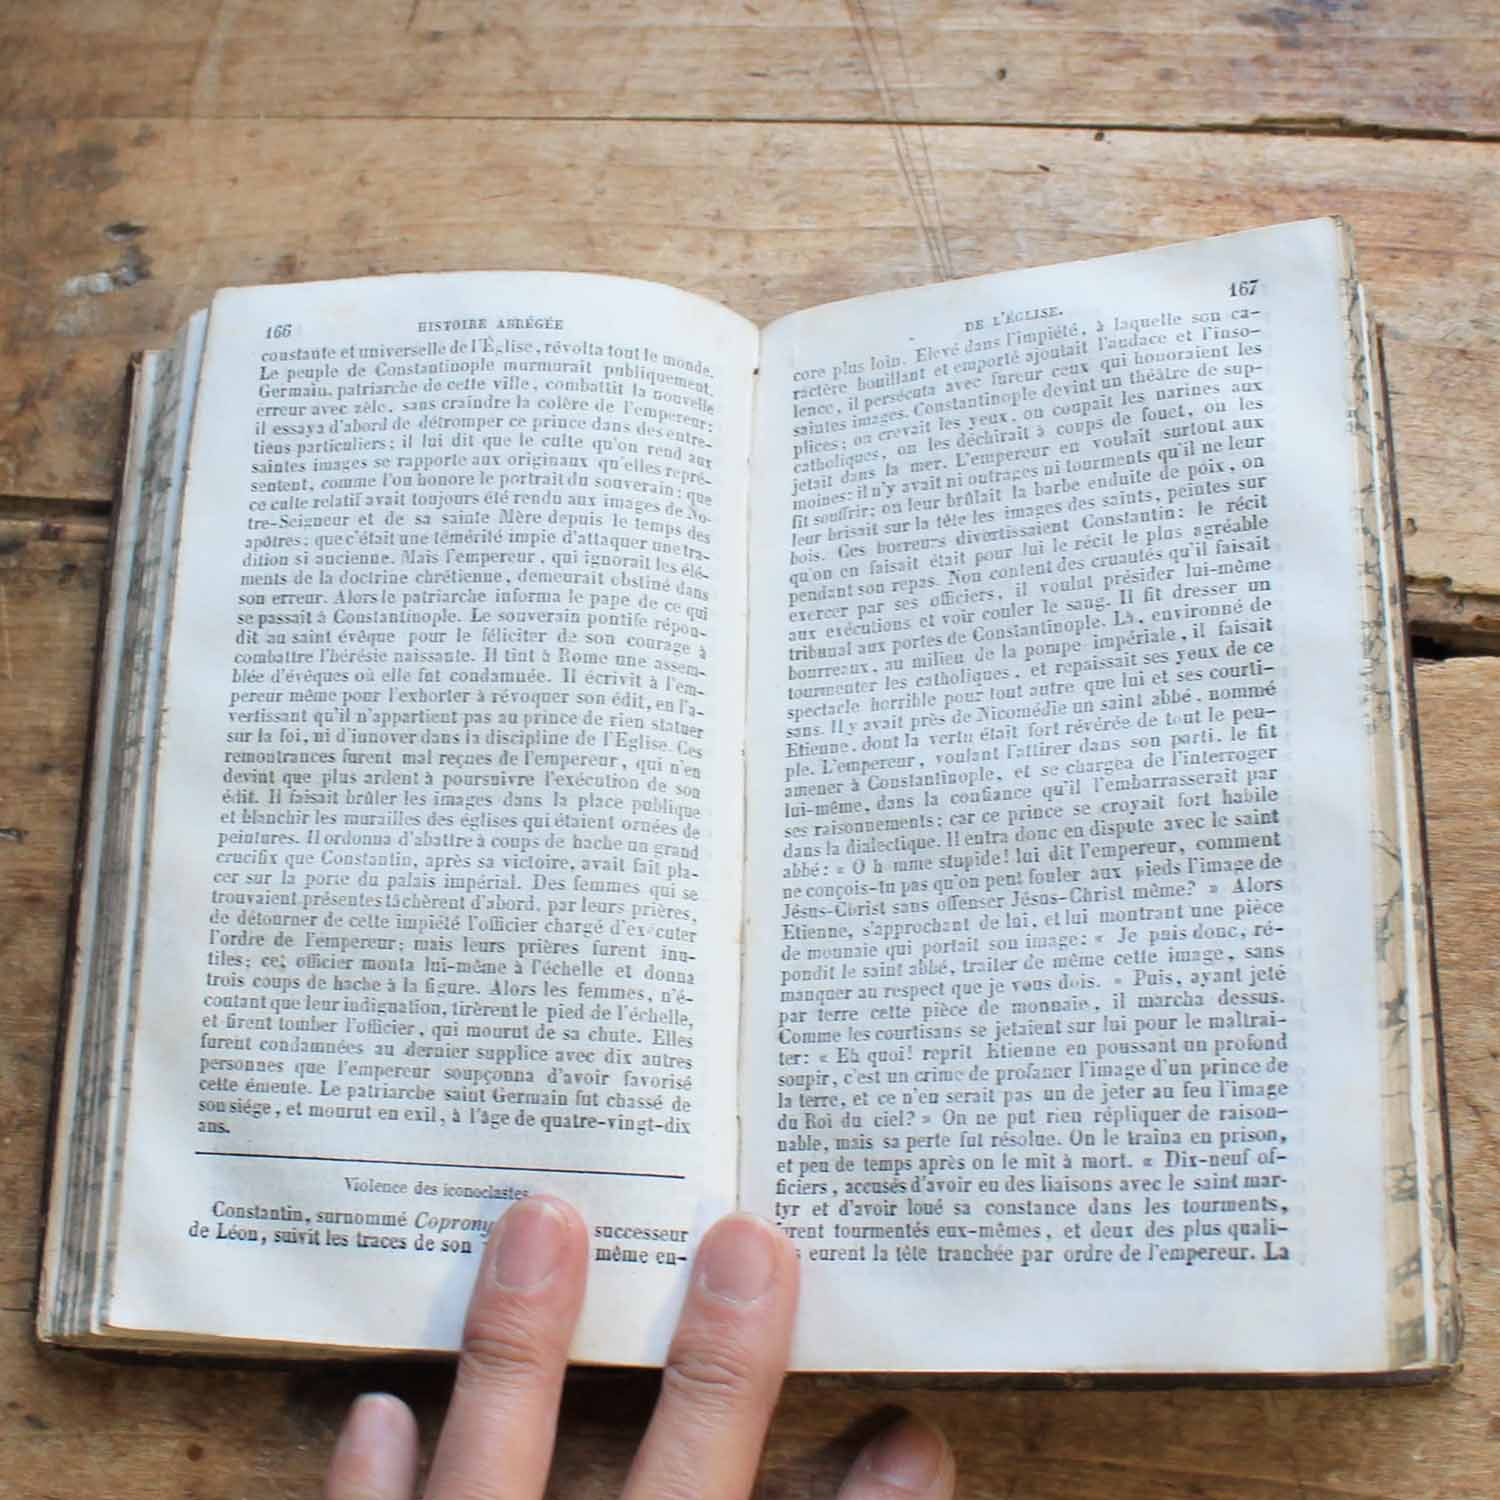 166
HISTOIRE ABRÉGÉE
constante et universelle de l'Église, révolta tout le monde.
Le peuple de Constantinople murmurait publiquement.
Germain, patriarche de cette ville, combattit la nouvelle
erreur avec zèle, sans craindre la colère de l'empereur;
il essaya d'abord de détromper ce prince dans des entre-
tiens particuliers; il lui dit que le culte qu'on rend aux
saintes images se rapporte aux originaux qu'elles repré-
sentent, comme l'on honore le portrait du souverain; que
ce culte relatif avait toujours été rendu aux images de No-
tre-Seigneur et de sa sainte Mère depuis le temps des
apôtres; que c'était une témérité impie d'attaquer une tra-
dition si ancienne. Mais l'empereur, qui ignorait les élé-
ments de la doctrine chrétienne, demeurait obstiné dans
son erreur. Alors le patriarche informa le pape de ce qui
se passait à Constantinople. Le souverain pontife répon-
dit au saint évêque pour le féliciter de son courage à
combattre l'hérésie naissante. Il tint à Rome une assem-
blée d'évêques où elle fut condamnée. Il écrivit à l'em-
pereur même pour l'exhorter à révoquer son édit, en l'a-
vertissant qu'il n'appartient pas au prince de rien statuer
sur la foi, ni d'innover dans la discipline de l'Eglise. Ces
remontrances furent mal reçues de l'empereur, qui n'en
devint que plus ardent à poursuivre l'exécution de son
édit. Il faisait brûler les images dans la place publique
et blanchir les murailles des églises qui étaient ornées de
peintures. Il ordonna d'abattre à coups de hache un grand
crucifix que Constantin, après sa victoire, avait fait pla-
cer sur la porte du palais impérial. Des femmes qui se
trouvaient présentes tâchèrent d'abord, par leurs prières,
de détourner de cette impiété l'officier chargé d'exécuter
l'ordre de l'empereur; mais leurs prières furent inu-
tiles; cet officier monta lui-même à l'échelle et donna
trois coups de hache à la figure. Alors les femmes, n'é-
coutant que leur indignation, tirèrent le pied de l'échelle,
et firent tomber l'officier, qui mourut de sa chute. Elles
furent condamnées au dernier supplice avec dix autres
personnes que l'empereur soupçonna d'avoir favorisé
cette émeute. Le patriarche saint Germain fut chassé de
son siége, et mourut en exil, à l'âge de quatre-vingt-dix
ans.
Violence des iconoclastes.
Constantin, surnommé Coprony successeur
de Léon, suivit les traces de son même en-
167
DE L'ÉGLISE.
core plus loin. Elevé dans l'impiété, à laquelle son ca-
ractère bouillant et emporté ajoutait l'audace et l'inso-
lence, il persécuta avec fureur ceux qui honoraient les
saintes images. Constantinople devint un théâtre de sup-
plices; on crevait les yeux, on coupait les narines aux
catholiques, on les déchirait à coups de fouet, on les
jetait dans la mer. L'empereur en voulait surtout aux
moines; il n'y avait ni outrages ni tourments qu'il ne leur
fit souffrir; on leur brûlait la barbe enduite de poix, on
leur brisait sur la tête les images des saints, peintes sur
bois. Ces horreurs divertissaient Constantin; le récit
qu'on en faisait était pour lui le récit le plus agréable
pendant son repas. Non content des cruautés qu'il faisait
exercer par ses officiers, il voulut présider lui-même
aux exécutions et voir couler le sang. Il fit dresser un
tribunal aux portes de Constantinople. Là, environné de
bourreaux, au milieu de la pompe impériale, il faisait
tourmenter les catholiques, et repaissait ses yeux de ce
spectacle horrible pour tout autre que lui et ses courti-
sans. Il y avait près de Nicomédie un saint abbé, nommé
Etienne, dont la vertu était fort révérée de tout le peu-
ple. L'empereur, voulant l'attirer dans son parti, le fit
amener à Constantinople, et se chargea de l'interroger
lui-même, dans la confiance qu'il l'embarrasserait par
ses raisonnements; car ce prince se croyait fort habile
dans la dialectique. Il entra donc en dispute avec le saint
abbé: « O homme stupide! lui dit l'empereur, comment
ne conçois-tu pas qu'on peut fouler aux pieds l'image de
Jésus-Christ sans offenser Jésus-Christ même? » Alors
Etienne, s'approchant de lui, et lui montrant une pièce
de monnaie qui portait son image: « Je puis donc, ré-
pondit le saint abbé, traiter de même cette image, sans
manquer au respect que je vous dois. » Puis, ayant jeté
par terre cette pièce de monnaie, il marcha dessus.
Comme les courtisans se jetaient sur lui pour le maltrai-
ter: « Eh quoi! reprit Etienne en poussant un profond
soupir, c'est un crime de profaner l'image d'un prince de
la terre, et ce n'en serait pas un de jeter au feu l'image
du Roi du ciel? » On ne put rien répliquer de raison-
nable, mais sa perte fut résolue. On le traîna en prison,
et peu de temps après on le mit à mort. « Dix-neuf of-
ficiers, accusés d'avoir eu des liaisons avec le saint mar-
tyr et d'avoir loué sa constance dans les tourments,
furent tourmentés eux-mêmes, et deux des plus quali-
eurent la tête tranchée par ordre de l'empereur. La